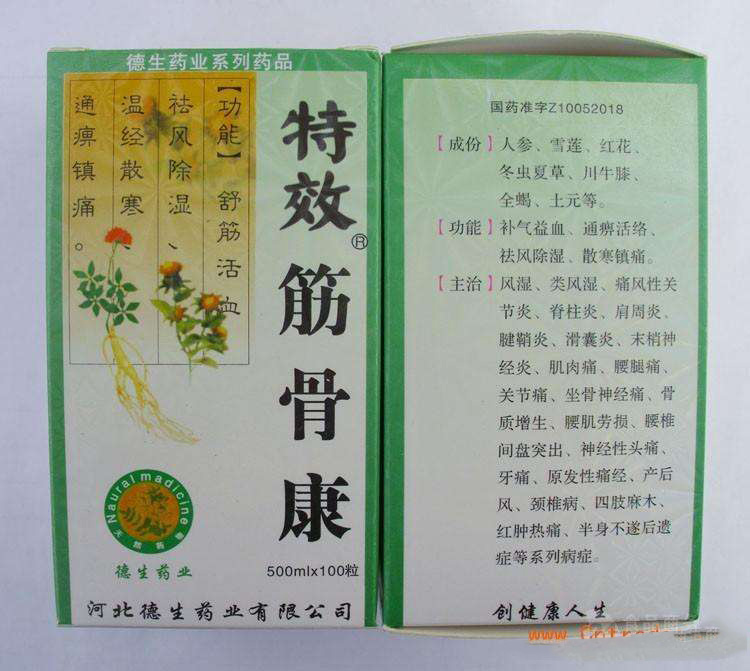 德生药业系列药品
【功能】舒筋活血
祛风除湿、
温经散寒、
通痹镇痛。
特效®筋骨康
Naural madicine
天然药
德生药业
500mlx100粒
河北德生药业有限公司
国药准字Z10052018
【成份】人参、雪莲、红花、
冬虫夏草、川牛膝、
全蝎、土元等。
【功能】补气益血、通痹活络、
祛风除湿、散寒镇痛。
【主治】风湿、类风湿、痛风性关
节炎、脊柱炎、肩周炎、
腱鞘炎、滑囊炎、末梢神
经炎、肌肉痛、腰腿痛、
关节痛、坐骨神经痛、骨
质增生、腰肌劳损、腰椎
间盘突出、神经性头痛、
牙痛、原发性痛经、产后
风、颈椎病、四肢麻木、
红肿热痛、半身不遂后遗
症等系列病症。
创健康人生